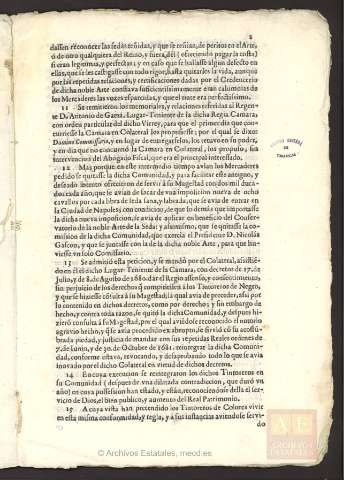 2
dassen reconocer las sedas teñidas, y que se teñian, de peritos en el Arte,
ò de otro qualquiera del Reino, y fuera, del (ofreciendo pagar la costa)
si eran legitimas, y perfectas; y en caso que se hallasse algun defecto en
ellas, que se les castigasse con todo rigor, hasta quitarles la vida, aunque
por las repetidas relaciones, y certificaciones dadas por el Credenciero
de dicha noble Arte constava suficientissimamente eran calumnias de
los Mercaderes las vozes esparcidas, y que el tinte era perfectissimo.
11 Se remitieron los memoriales, y relaciones referidas al Regente
D. Antonio de Gama, Lugar-Teniente de la dicha Regia Camara
con orden particular del dicho Virrey, para que el primer dia que concurriesse
la Camara en Colateral los propusiesse; por el qual se dixo:
Domini Commissarii, en lugar de entregarselos, los retuvo en su poder,
y en dia que no concurriò la Camara en Colateral, los propuso, sin
intervencion del Abogado Fiscal, que era el principal interessado.
12 Mas porque en este intermedio tiempo avian los Mercaderes
pedido se quitasse la dicha Comunidad, y para facilitar este antiguo, y
deseado intento ofrecieron de servir à su Magestad con dos mil ducados
cada año, que se avian de sacar de una imposicion nueva de ocho
cavallos por cada libra de seda sana, y labrada, que se avia de entrar en
la Ciudad de Napoles; con condicion, de que lo demàs que importasse
la dicha nueva imposicion, se avia de aplicar en beneficio del Conservatorio
de la noble Arte de la Seda: y assimismo, que se quitasse la comission
de dicha Comunidad, que exercia el Presidente D. Nicolàs
Gascon, y que se juntasse con la de la dicha noble Arte, para que huviesse
un solo Comissario.
13 Se admitiò esta peticion, y se mandò por el Colateral, assistiendo
en él dicho Lugar-Teniente de la Camara, con decretos de 17. de
Julio, y de 8. de Agosto de 1680. dar el Regio assenso, y consecutivamente,
sin perjuizio de los derechos q̃ competiessen à los Tintoreros de Negro,
y que se hiziesse cõsulta à su Magestad; la qual avia de preceder, assi por
lo contenido en dichos decretos, como por derecho; y sin embargo de
hecho, y contra toda razon, se quitò la dicha Comunidad, y despues hizieron
consulta à su Magestad, por el qual aviendose reconocido el notorio
agravio hecho, y q̃ se avia procedido ex abrupto, se sirviò cõ su acostumbrada
piedad, y justicia de mandar con sus repetidas Reales ordenes de
7. de Iunio, y de 30. de Octubre de 1681. reintegrar la dicha Comunidad,
conforme estava, revocando, y desaprobando todo lo que se avia
innovado por el dicho Colateral en virtud de dichos decretos.
14 En cuya execucion se reintegraron los dichos Tintoreros en
su Comunidad (despues de una dilatada contradicion, que durò un
año) en cuya possession han estado, y estàn, reconociendose della el servicio
de Dios, el bien publico, y aumento del Real Patrimonio.
15 A cuya vista han pretendido los Tintoreros de Colores vivir
en esta misma conformidad, y regla, y à sus instancias aviendose servido
do
ARCHIVO GENERAL DE SIMANCAS
AE
ARCHIVOS
ESTATALES
© Archivos Estatales, mecd.es